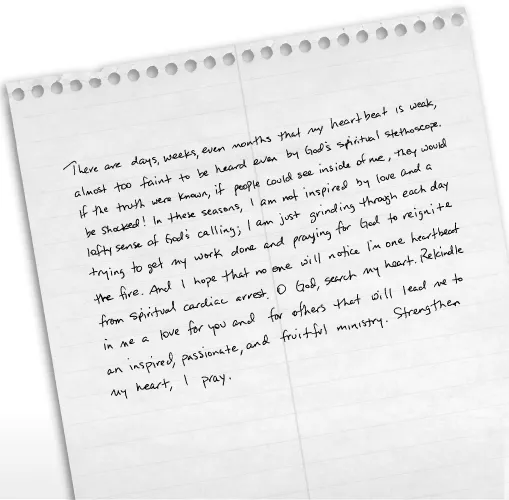 There are days, weeks, even months that my heartbeat is weak,
almost too faint to be heard even by God's spiritual stethoscope.
If the truth were known, if people could see inside of me, they would
be shocked! In these seasons, I am not inspired by love and a
lofty sense of God's calling; I am just grinding through each day
trying to get my work done and praying for God to reignite
the fire. And I hope that no one will notice I'm one heartbeat
from spiritual cardiac arrest. O God, search my heart. Rekindle
in me a love for you and for others that will lead me to
an inspired, passionate, and fruitful ministry. Strengthen
my heart, I pray.